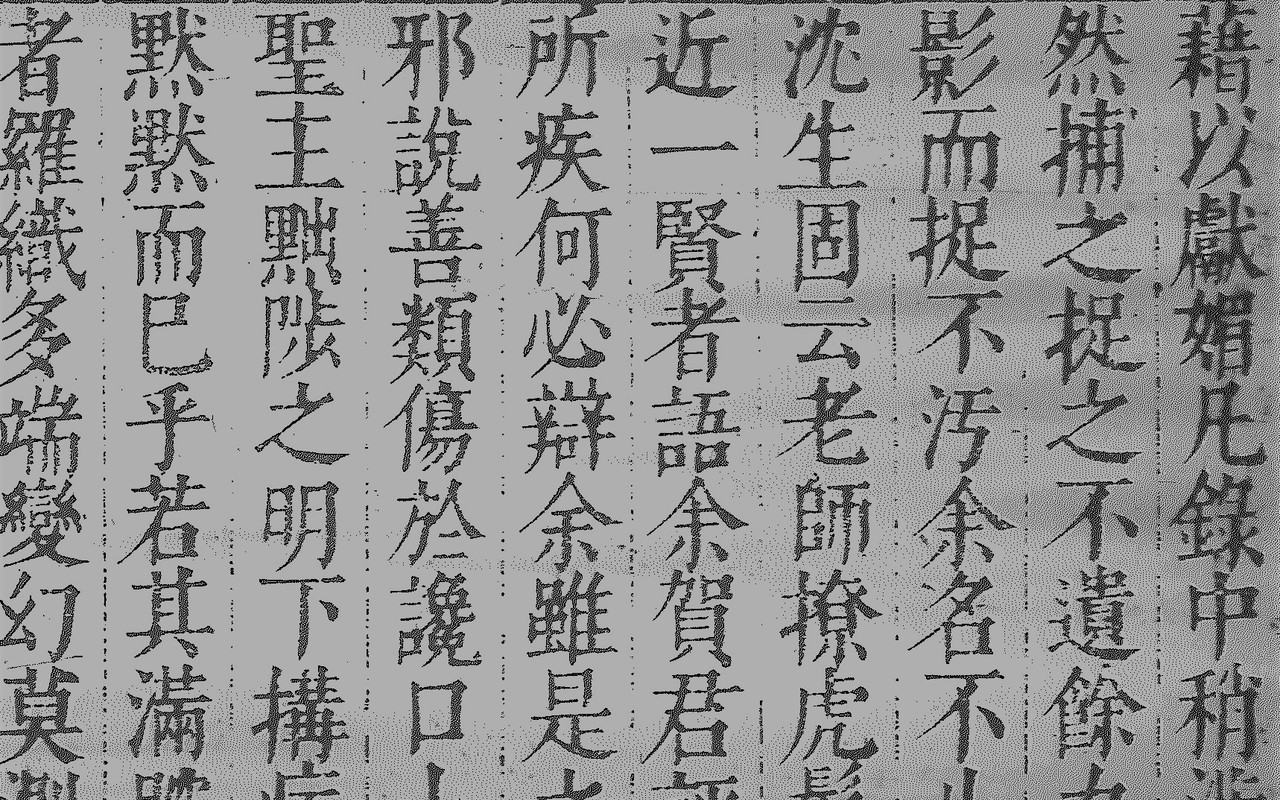 藉以獻媚凡錄中稍
然捕之捉之不遺餘
影而捉不汚余名不
沈生固云老師撩虎
近一賢者語余賀君
所疾何必辯余雖是
邪說善類傷於讒口
聖主黜陟之明下搆
默默而已乎若其滿
者羅織多端變幻莫